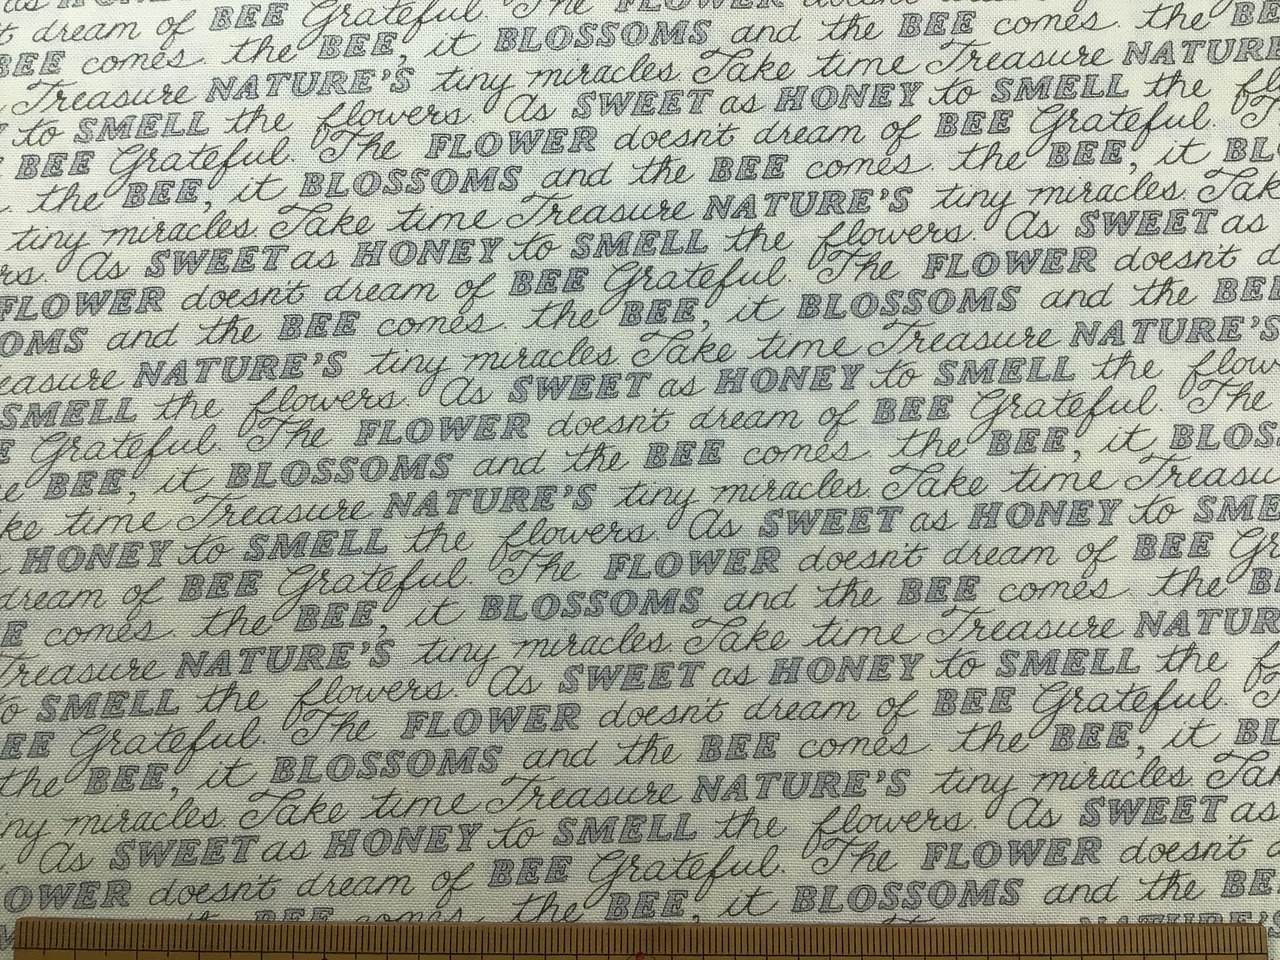 dream of BEE Grateful. The FLOWER
BEE comes. the BEE, it BLOSSOMS and the BEE comes. the
Treasure NATURE'S tiny miracles. Take time Treasure NATURE
to SMELL the flowers. As SWEET as HONEY to SMELL the
BEE Grateful. The FLOWER doesn't dream of BEE Grateful.
the BEE, it BLOSSOMS and the BEE comes. the BEE, it
tiny miracles. Take time Treasure NATURE'S tiny miracles.
As SWEET as HONEY to SMELL the flowers. As SWEET as
FLOWER doesn't dream of BEE Grateful. The FLOWER doesn't
OMS and the BEE comes. the BEE, it BLOSSOMS and the
easure NATURE'S tiny miracles. Take time Treasure NATURE'S
SMELL the flowers. As SWEET as HONEY to SMELL the
Grateful. The FLOWER doesn't dream of BEE Grateful. The
BEE, it BLOSSOMS and the BEE comes. the BEE, it BLOS
ke time Treasure NATURE'S tiny miracles. Take time Treasu
HONEY to SMELL the flowers. As SWEET as HONEY to SME
dream of BEE Grateful. The FLOWER doesn't dream of BEE
comes. the BEE, it BLOSSOMS and the BEE comes. the
Treasure NATURE'S tiny miracles. Take time Treasure NATUR
to SMELL the flowers. As SWEET as HONEY to SMELL the
EE Grateful. The FLOWER doesn't dream of BEE Grateful.
the BEE, it BLOSSOMS and the BEE comes. the BEE, it BL
ny miracles. Take time Treasure NATURE'S tiny miracles.
As SWEET as HONEY to SMELL the flowers. As SWEET as
OWER doesn't dream of BEE Grateful. The FLOWER doesn't
BEE comes. the BEE, it BLOSSOMS and the BE